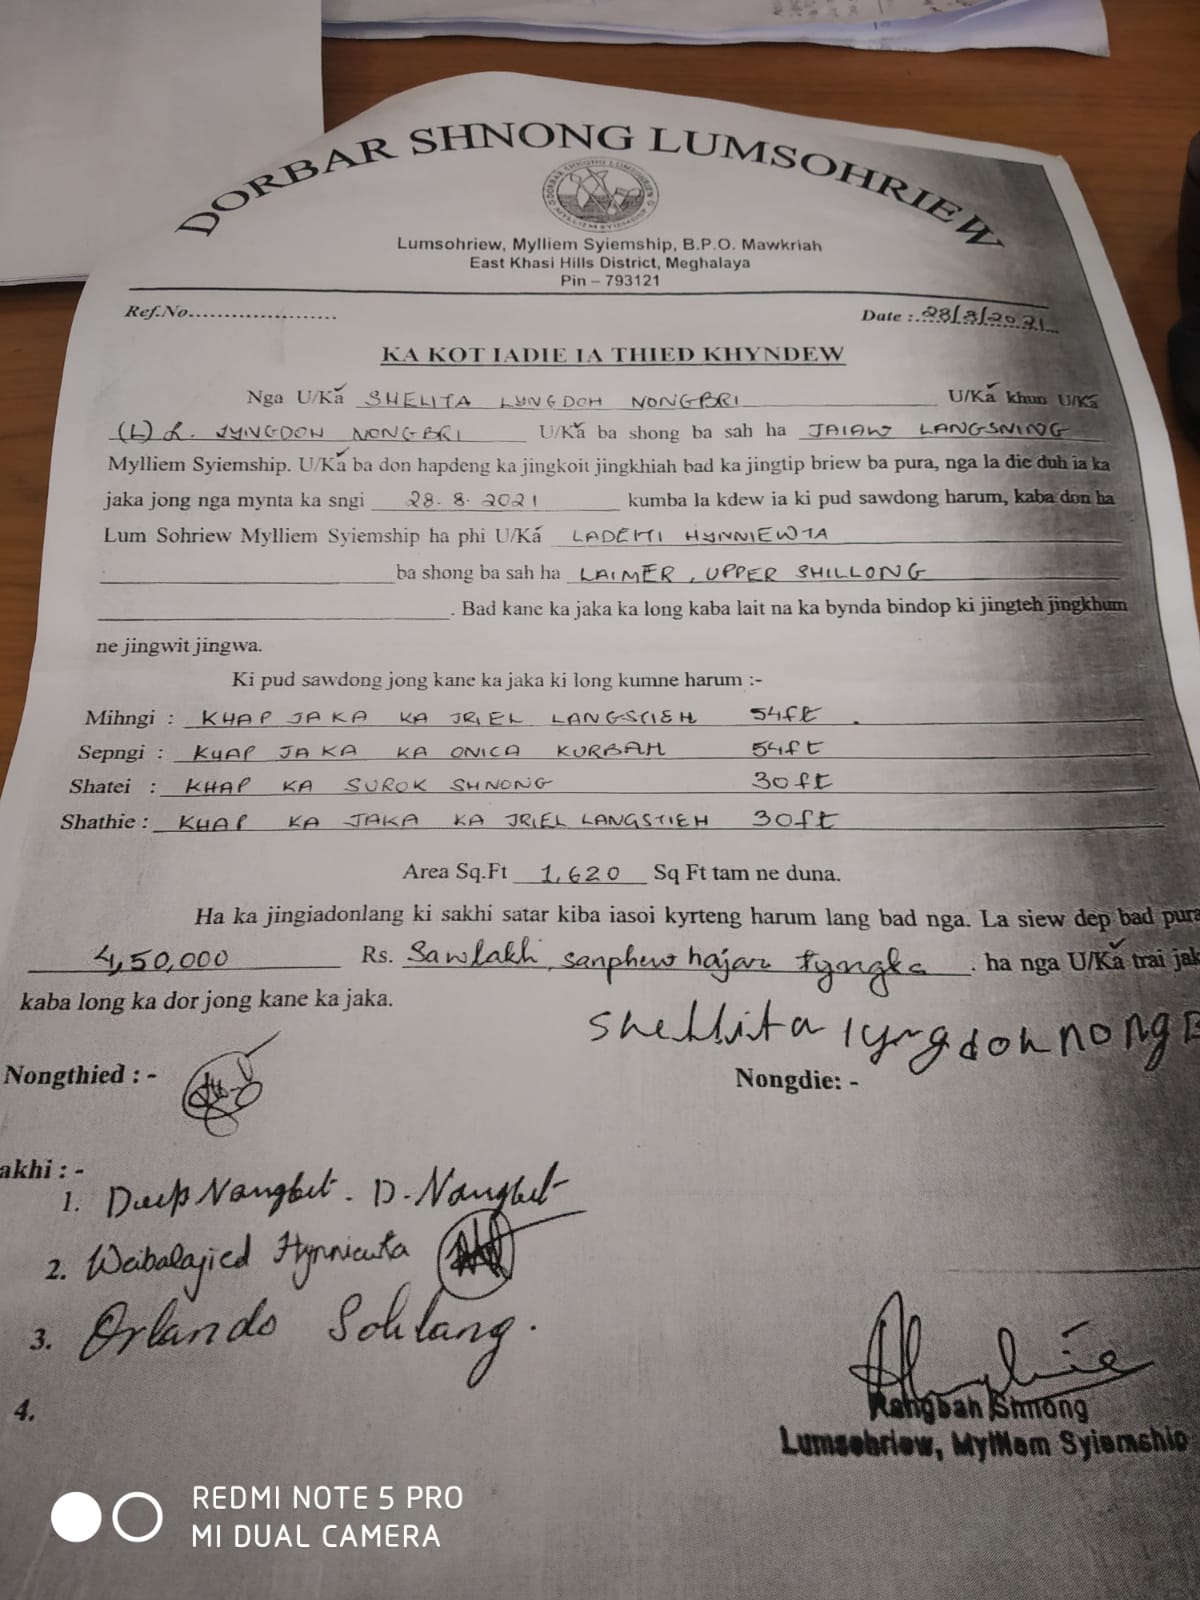 DORBAR SHNONG LUMSOHRIEW
Lumsohriew, Mylliem Syiemship, B.P.O. Mawkriah
East Khasi Hills District, Meghalaya
Pin – 793121
Ref.No..................... Date : 28/8/2021
KA KOT IADIE IA THIED KHYNDEW
Nga U/Ka SHELITA LYNGDOH NONGBRI U/Ka khun U/Ka
(L) L. LYNGDOH NONGBRI U/Ka ba shong ba sah ha JAIAW LANGSNING
Mylliem Syiemship. U/Ka ba don hapdeng ka jingkoit jingkhiah bad ka jingtip briew ba pura, nga la die duh ia ka
jaka jong nga mynta ka sngi 28.8.2021 kumba la kdew ia ki pud sawdong harum, kaba don ha
Lum Sohriew Mylliem Syiemship ha phi U/Ka LADEITI HYNNIEWTA
ba shong ba sah ha LAIMER, UPPER SHILLONG
. Bad kane ka jaka ka long kaba lait na ka bynda bindop ki jingteh jingkhum
ne jingwit jingwa.
Ki pud sawdong jong kane ka jaka ki long kumne harum :-
Mihngi : KHAP JAKA KA JRIEL LANGSTIEH 54ft .
Sepngi : KHAP JAKA KA ONICA KURBAH 54ft
Shatei : KHAP KA SUROK SHNONG 30ft
Shathie : KHAP KA JAKA KA JRIEL LANGSTIEH 30ft
Area Sq.Ft 1,620 Sq Ft tam ne duna.
Ha ka jingiadonlang ki sakhi satar kiba iasoi kyrteng harum lang bad nga. La siew dep bad pura
4,50,000 Rs. Sawlakh, sanphew hajar tyngka . ha nga U/Ka trai jak
kaba long ka dor jong kane ka jaka.
Shellita lyngdoh nongB
Nongthied : - Nongdie: -
akhi : -
1. Deep Nangbet. D. Nangbet
2. Weibalajied Hynniewta
3. Orlando Sohlang.
4.
Rangbah Shnong
Lumsohriew, Mylliem Syiemship
REDMI NOTE 5 PRO
MI DUAL CAMERA